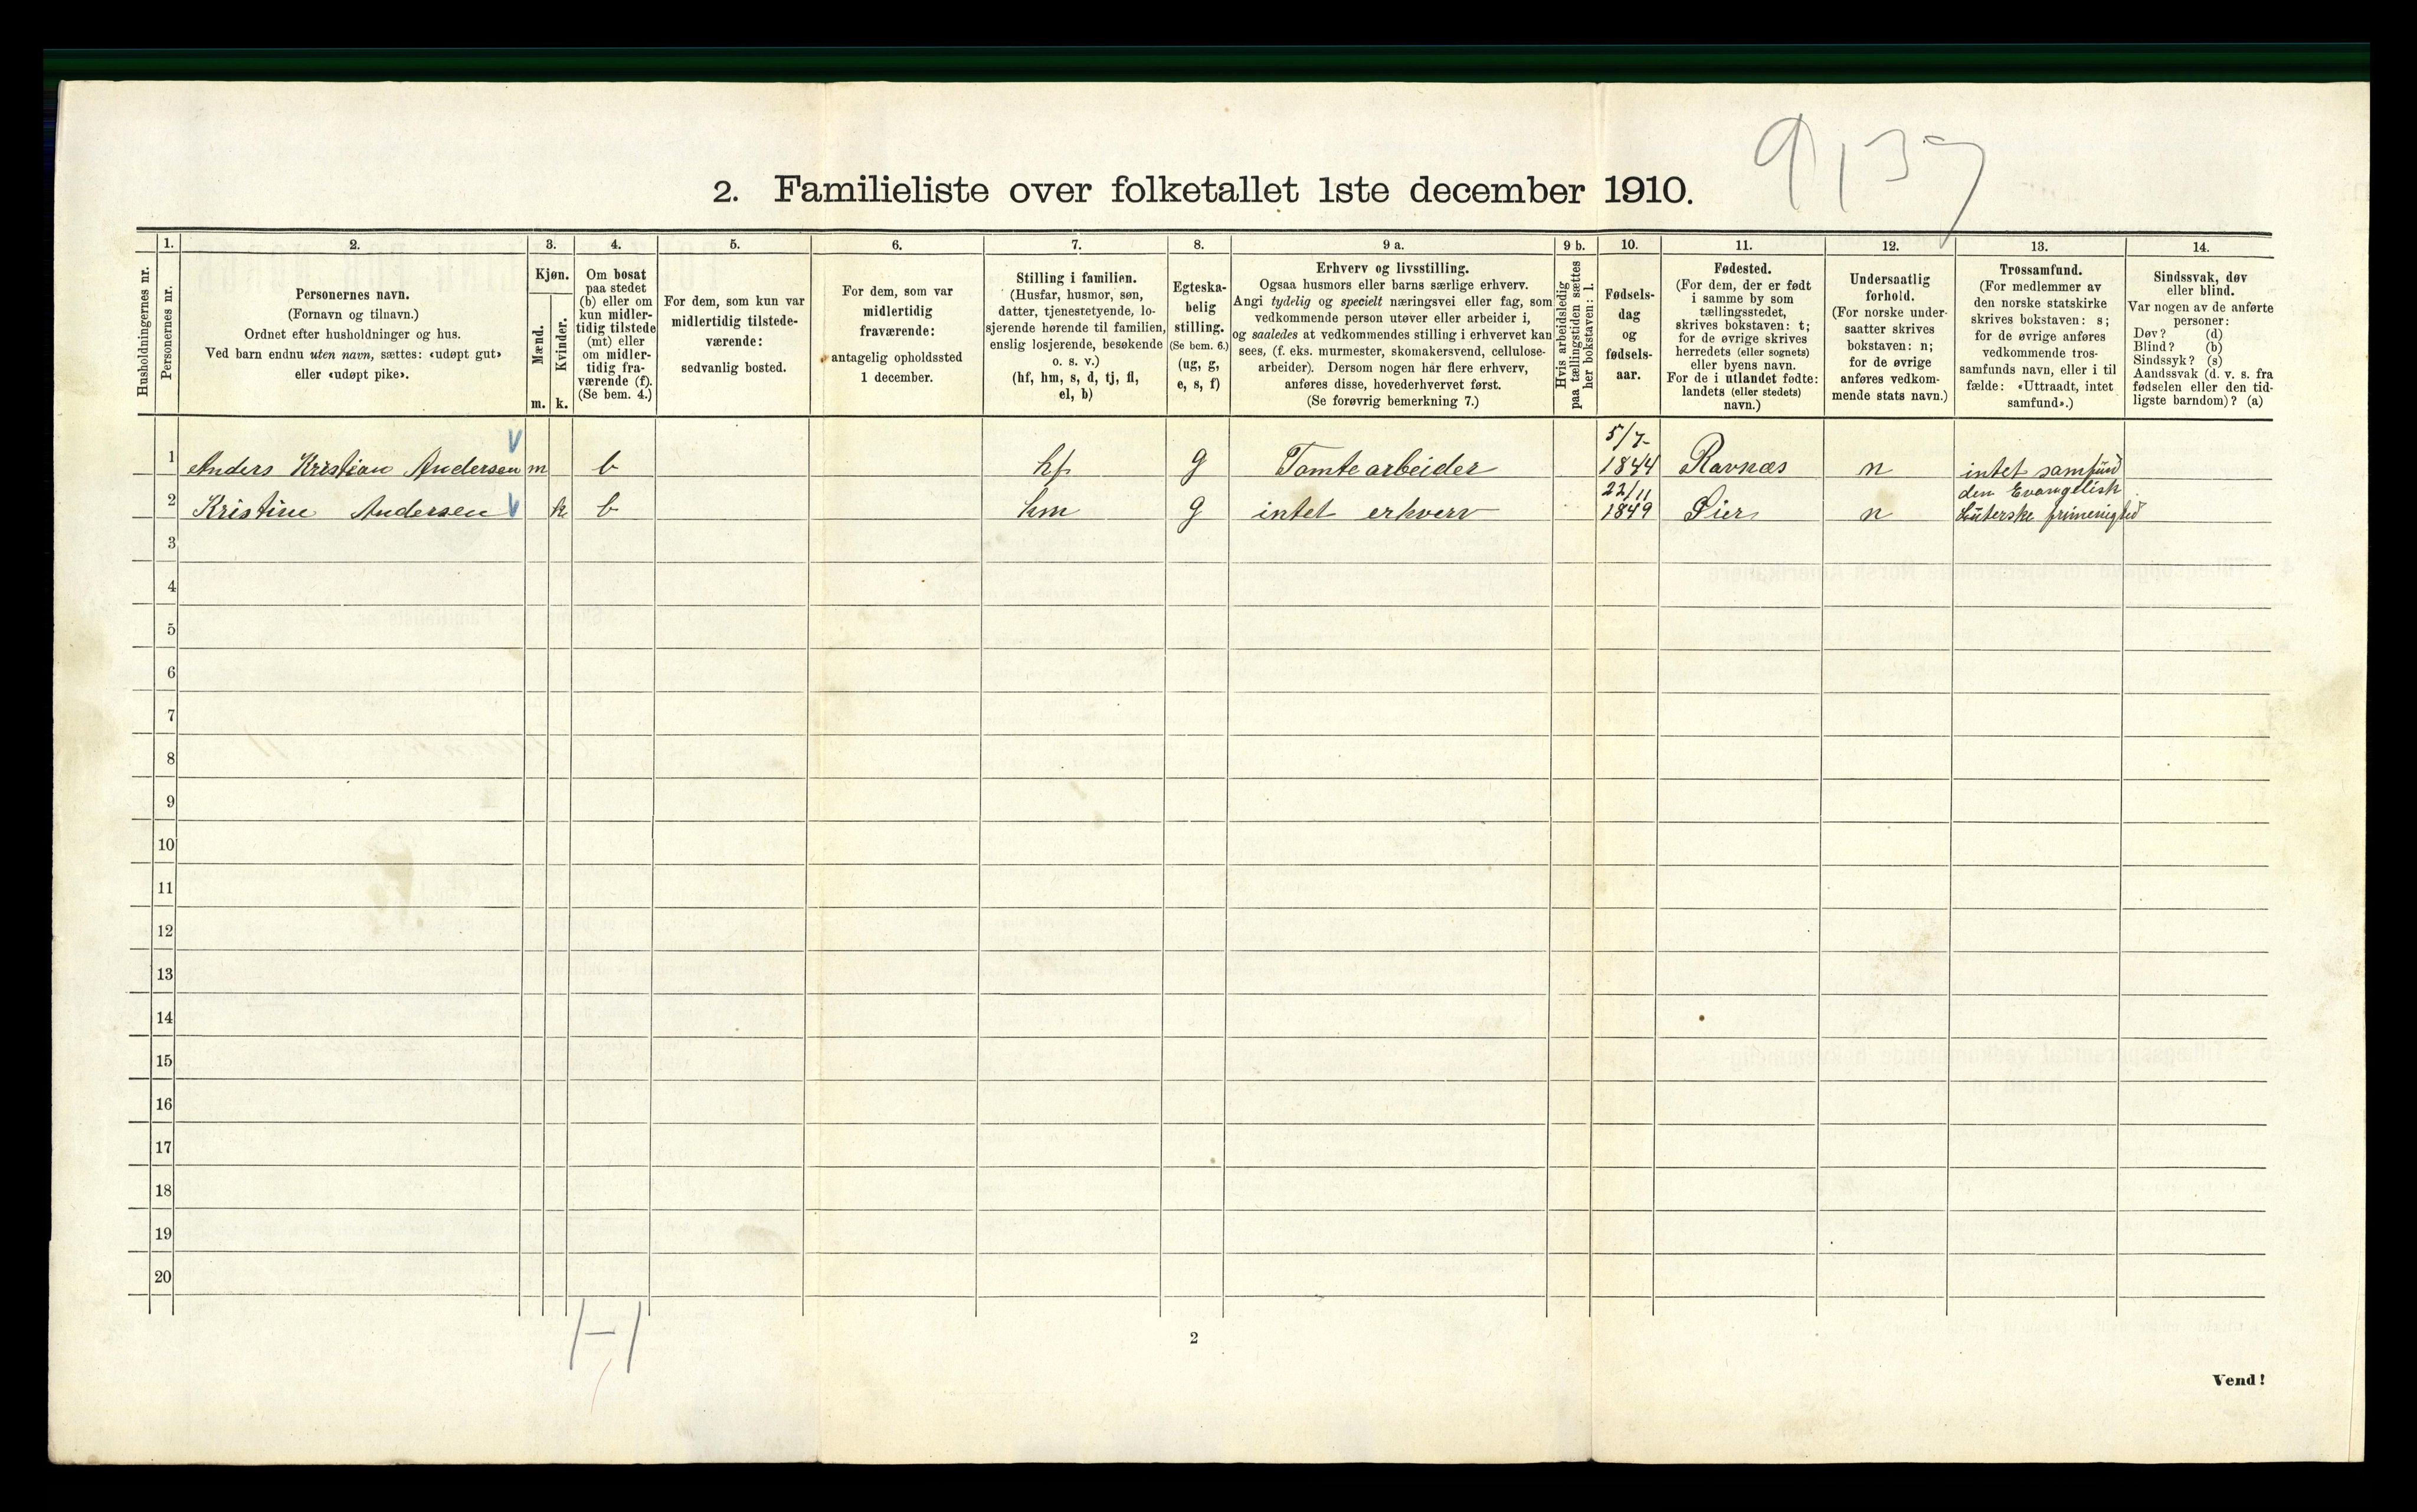 9137
2. Familieliste over folketallet 1ste december 1910.
Husholdningernes nr.
1.
Personernes nr.
2.
Personernes navn.
(Fornavn og tilnavn.)
Ordnet efter husholdninger og hus.
Ved barn endnu uten navn, sættes: «udøpt gut»
eller «udøpt pike».
3.
Kjøn.
Mænd.
m.
Kvinder.
k.
4.
Om bosat
paa stedet
(b) eller om
kun midler-
tidig tilstede
(mt) eller
om midler-
tidig fra-
værende (f).
(Se bem. 4.)
5.
For dem, som kun var
midlertidig tilstede-
værende:
sedvanlig bosted.
6.
For dem, som var
midlertidig
fraværende:
antagelig opholdssted
1 december.
7.
Stilling i familien.
(Husfar, husmor, søn,
datter, tjenestetyende, lo-
sjerende hørende til familien,
enslig losjerende, besøkende
o. s. v.)
(hf, hm, s, d, tj, fl,
el, b)
8.
Egteska-
belig
stilling.
(Se bem. 6.)
(ug, g,
e, s, f)
9 a.
Erhverv og livsstilling.
Ogsaa husmors eller barns særlige erhverv.
Angi tydelig og specielt næringsvei eller fag, som
vedkommende person utøver eller arbeider i,
og saaledes at vedkommendes stilling i erhvervet kan
sees, (f. eks. murmester, skomakersvend, cellulose-
arbeider). Dersom nogen har flere erhverv,
anføres disse, hovederhvervet først.
(Se forøvrig bemerkning 7.)
9 b.
Hvis arbeidsledig
paa tællingstiden sættes
her bokstaven: l.
10.
Fødsels-
dag
og
fødsels-
aar.
11.
Fødested.
(For dem, der er født
i samme by som
tællingsstedet,
skrives bokstaven: t;
for de øvrige skrives
herredets (eller sognets)
eller byens navn.
For de i utlandet fødte:
landets (eller stedets)
navn.)
12.
Undersaatlig
forhold.
(For norske under-
saatter skrives
bokstaven: n;
for de øvrige
anføres vedkom-
mende stats navn.)
13.
Trossamfund.
(For medlemmer av
den norske statskirke
skrives bokstaven: s;
for de øvrige anføres
vedkommende tros-
samfunds navn, eller i til
fælde: «Uttraadt, intet
samfund».)
14.
Sindssvak, døv
eller blind.
Var nogen av de anførte
personer:
Døv? (d)
Blind? (b)
Sindssyk? (s)
Aandssvak (d. v. s. fra
fødselen eller den tid-
ligste barndom)? (a)
1 Anders Kristian Andersen m b hf g Tomtearbeider 5/7- 1844 Ravnæs n intet samfund
2 Kristine Andersen k b hm g intet erhverv 22/11 1849 Lier n den Evangelisk Luterske
3
4
5
6
7
8
9
10
11
12
13
14
15
16
17
18
19
20
1-1
2
Vend!